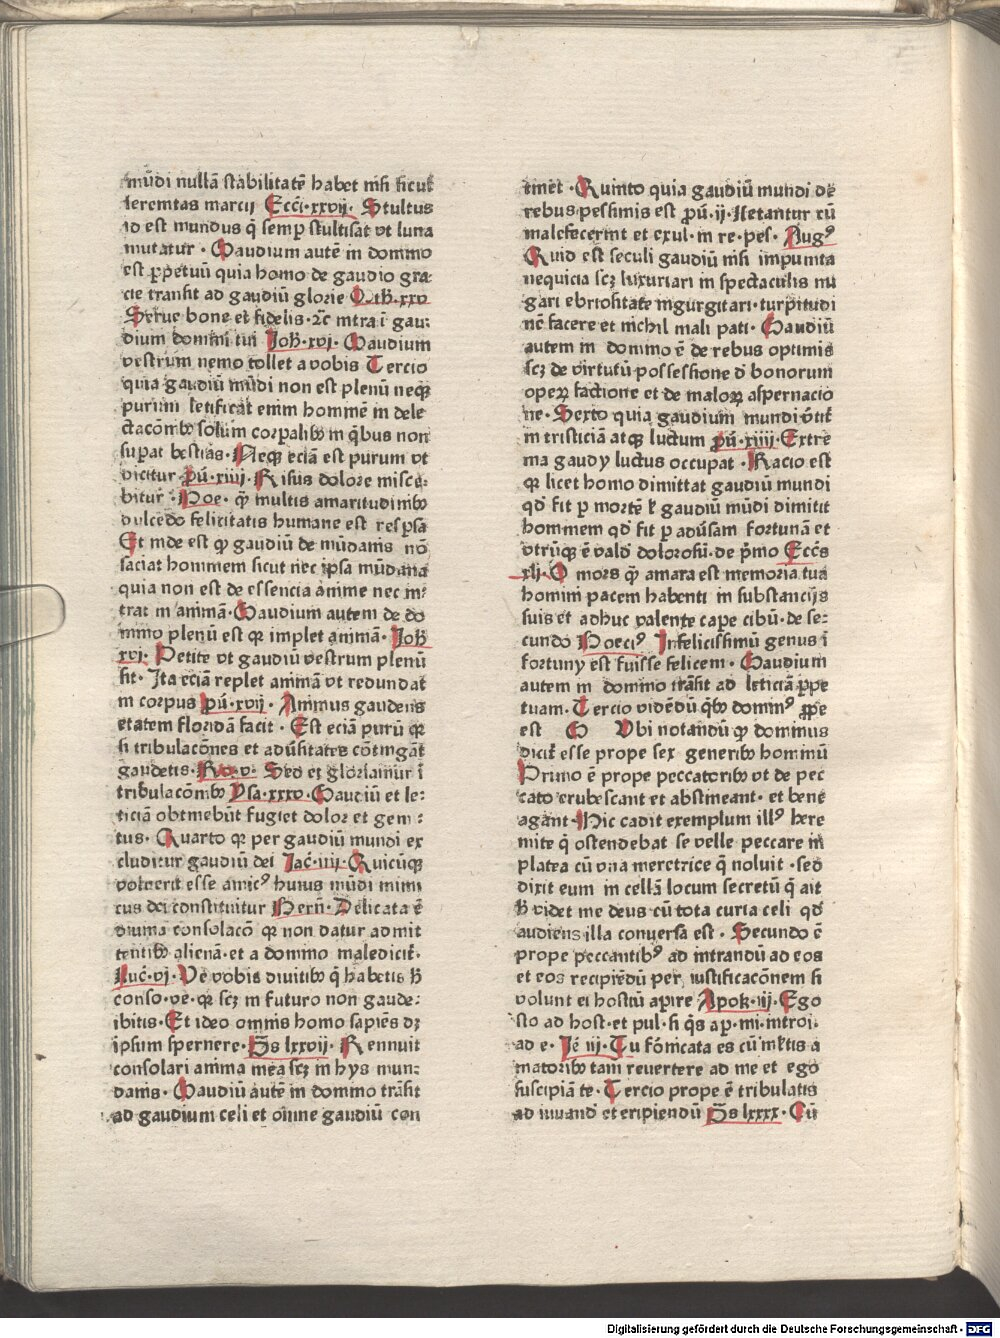 mūdi nullā stabilitatē habet nisi sicut
serenitas marcij Ecci·xxvij· Stultus
id est mundus q̄ semp stultisat vt luna
mutatur · Gaudium autē in domino
est ꝑpetuū quia homo de gaudio gra
cie transit ad gaudiū glorie Mth̄·xxv
Serue bone et fidelis ·⁊c̄ intra ī gau:
dium domini tui Joh̄·xvi· Gaudium
vestrum nemo tollet a vobis Tercio
quia gaudiū mūdi non est plenū neqꝫ
purum letificat enim hominē in dele
ctacōnibꝫ solum corpalibꝫ in q̄bus non
suꝑat bestias· Neqꝫ eciā est purum vt
dicitur ·Pū·xiiij· Risus dolore misce:
bitur ·Boe· qꝫ multis amaritudinibꝫ
dulcedo felicitatis humane est resꝑsa
Et inde est ꝙ gaudiū de mūdanis nō
saciat hominem sicut nec ipsa mūdana
quia non est de essencia anime nec in:
trat in animā· Gaudium autem de do
mino plenū est qꝛ implet animā· Joh̄
xvi· Petite vt gaudiū vestrum plenū
sit· Ita eciā replet animā vt redundat
in corpus pū·xvij· Animus gaudens
etatem floridā facit · Est eciā purū qꝛ
si tribulacōnes et adūsitates cōtingāt
gaudetis· Ro·v· Sed et gloriamur ī
tribulacōnibꝫ Ysa·xxxv· Gaudiū et le:
ticiā obtinebūt fugiet dolor et gem :
tus· Quarto qꝛ per gaudiū mundi ex
cluditur gaudiū dei Iac̄·iiij· Quicūqꝫ
voluerit esse amicꝰ huius mūdi inimi
cus dei constituitur Bern̄· Delicata ē
diuina consolacō qꝛ non datur admit
tentibꝫ alienā· et a domino maledicit̄·
Luc̄·vj· Ve vobis diuitibꝫ q̄ habetis h̄
conso·ve· qꝛ scꝫ in futuro non gaude:
ibitis· Et ideo omnis homo sapiēs dꝫ
ipsum spernere· Ps̄ lxxvij· Rennuit
consolari anima mea scꝫ in hys mun:
danis· Gaudiū autē in domino trāsit
ad gaudium celi et omne gaudiū con
tinet · Quinto quia gaudiū mundi de
rebus pessimis est pū·ij· Letantur cū
malefecerint et exul· in re·pes· Augꝰ
Quid est seculi gaudiū nisi impunita
nequicia scꝫ luxuriari in spectaculis nu
gari ebriositate ingurgitari· turpitudi
nē facere et nichil mali pati· Gaudiū
autem in domino ē de rebus optimis
scꝫ de virtutū possessione ⁊ bonorum
operꝝ factione et de malorꝝ aspernacio
ne· Sexto quia gaudium mundi v̄tit̄
in tristiciā atqꝫ luctum pū·xiiij· Extre
ma gaudy luctus occupat · Racio est
qꝛ licet homo dimittat gaudiū mundi
qd̄ fit ꝑ mortē l̄ gaudiū mūdi dimitit
hominem qd̄ fit ꝑ adūsam fortunā et
vtrūqꝫ ē vald̄ dolorosū· de p̄mo Eccs̄
xlj· O mors qꝫ amara est memoria tua
homini pacem habenti in substancijs
suis et adhuc valente capē cibū· de se:
cundo Boeciꝰ Infelicissimū genus ī
fortuny est fuisse felicem · Gaudium
autem in domino trāsit ad leticiā ꝑpe
tuam· Tercio vidēdū q̄bꝫ dominꝰ ꝓpe
est Vbi notandū ꝙ dominus
dicit̄ esse prope sex generibꝫ hominū
Primo ē prope peccatoribꝫ vt de pec
cato erubescant et abstineant· et bene
agant· Hic cadit exemplum illꝰ here
mite q̄ ostendebat se velle peccare in
platea cū vna meretrice q̄ noluit · sed
dixit eum in cellā locum secretū q̄ ait
h̄ videt me deus cū tota curia celi qd̄
audiens illa conuersa est · Secundo ē
prope peccantibꝰ ad intrandū ad eos
et eos recipiēdū per, iustificacōnem si
volunt ei hostiū aꝑire Apok·iij· Ego
sto ad host·et pul·si q̄s aꝑ·mi·introi·
ad e· Ie· iij· Tu fornicata es cū mltis a
matoribꝫ tam reuertere ad me et ego
suscipiā te· Tercio prope ē tribulatis
ad iuuand̄ et eripiendū Ps̄ lxxxx· Cū
Digitalisierung gefördert durch die Deutsche Forschungsgemeinschaft - DFG